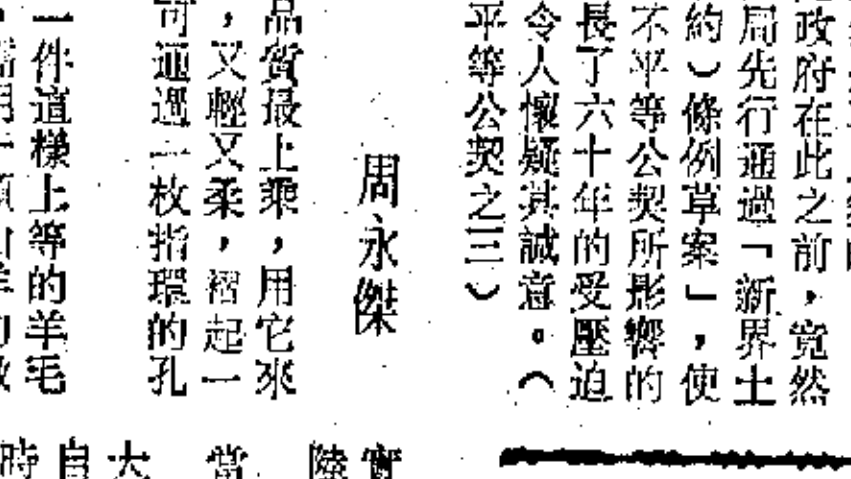 政府在此之前，竟然
局先行通過「新界土
約）條例草案」，使
不平等公契所影響的
長了六十年的受壓迫
令人懷疑其誠意。（
平等公契之三）
周永傑
品質最上乘，用它來
，又輕又柔，褶起一
可通過一枚指環的孔
一件這樣上等的羊毛
實
陸
當
大
自
時